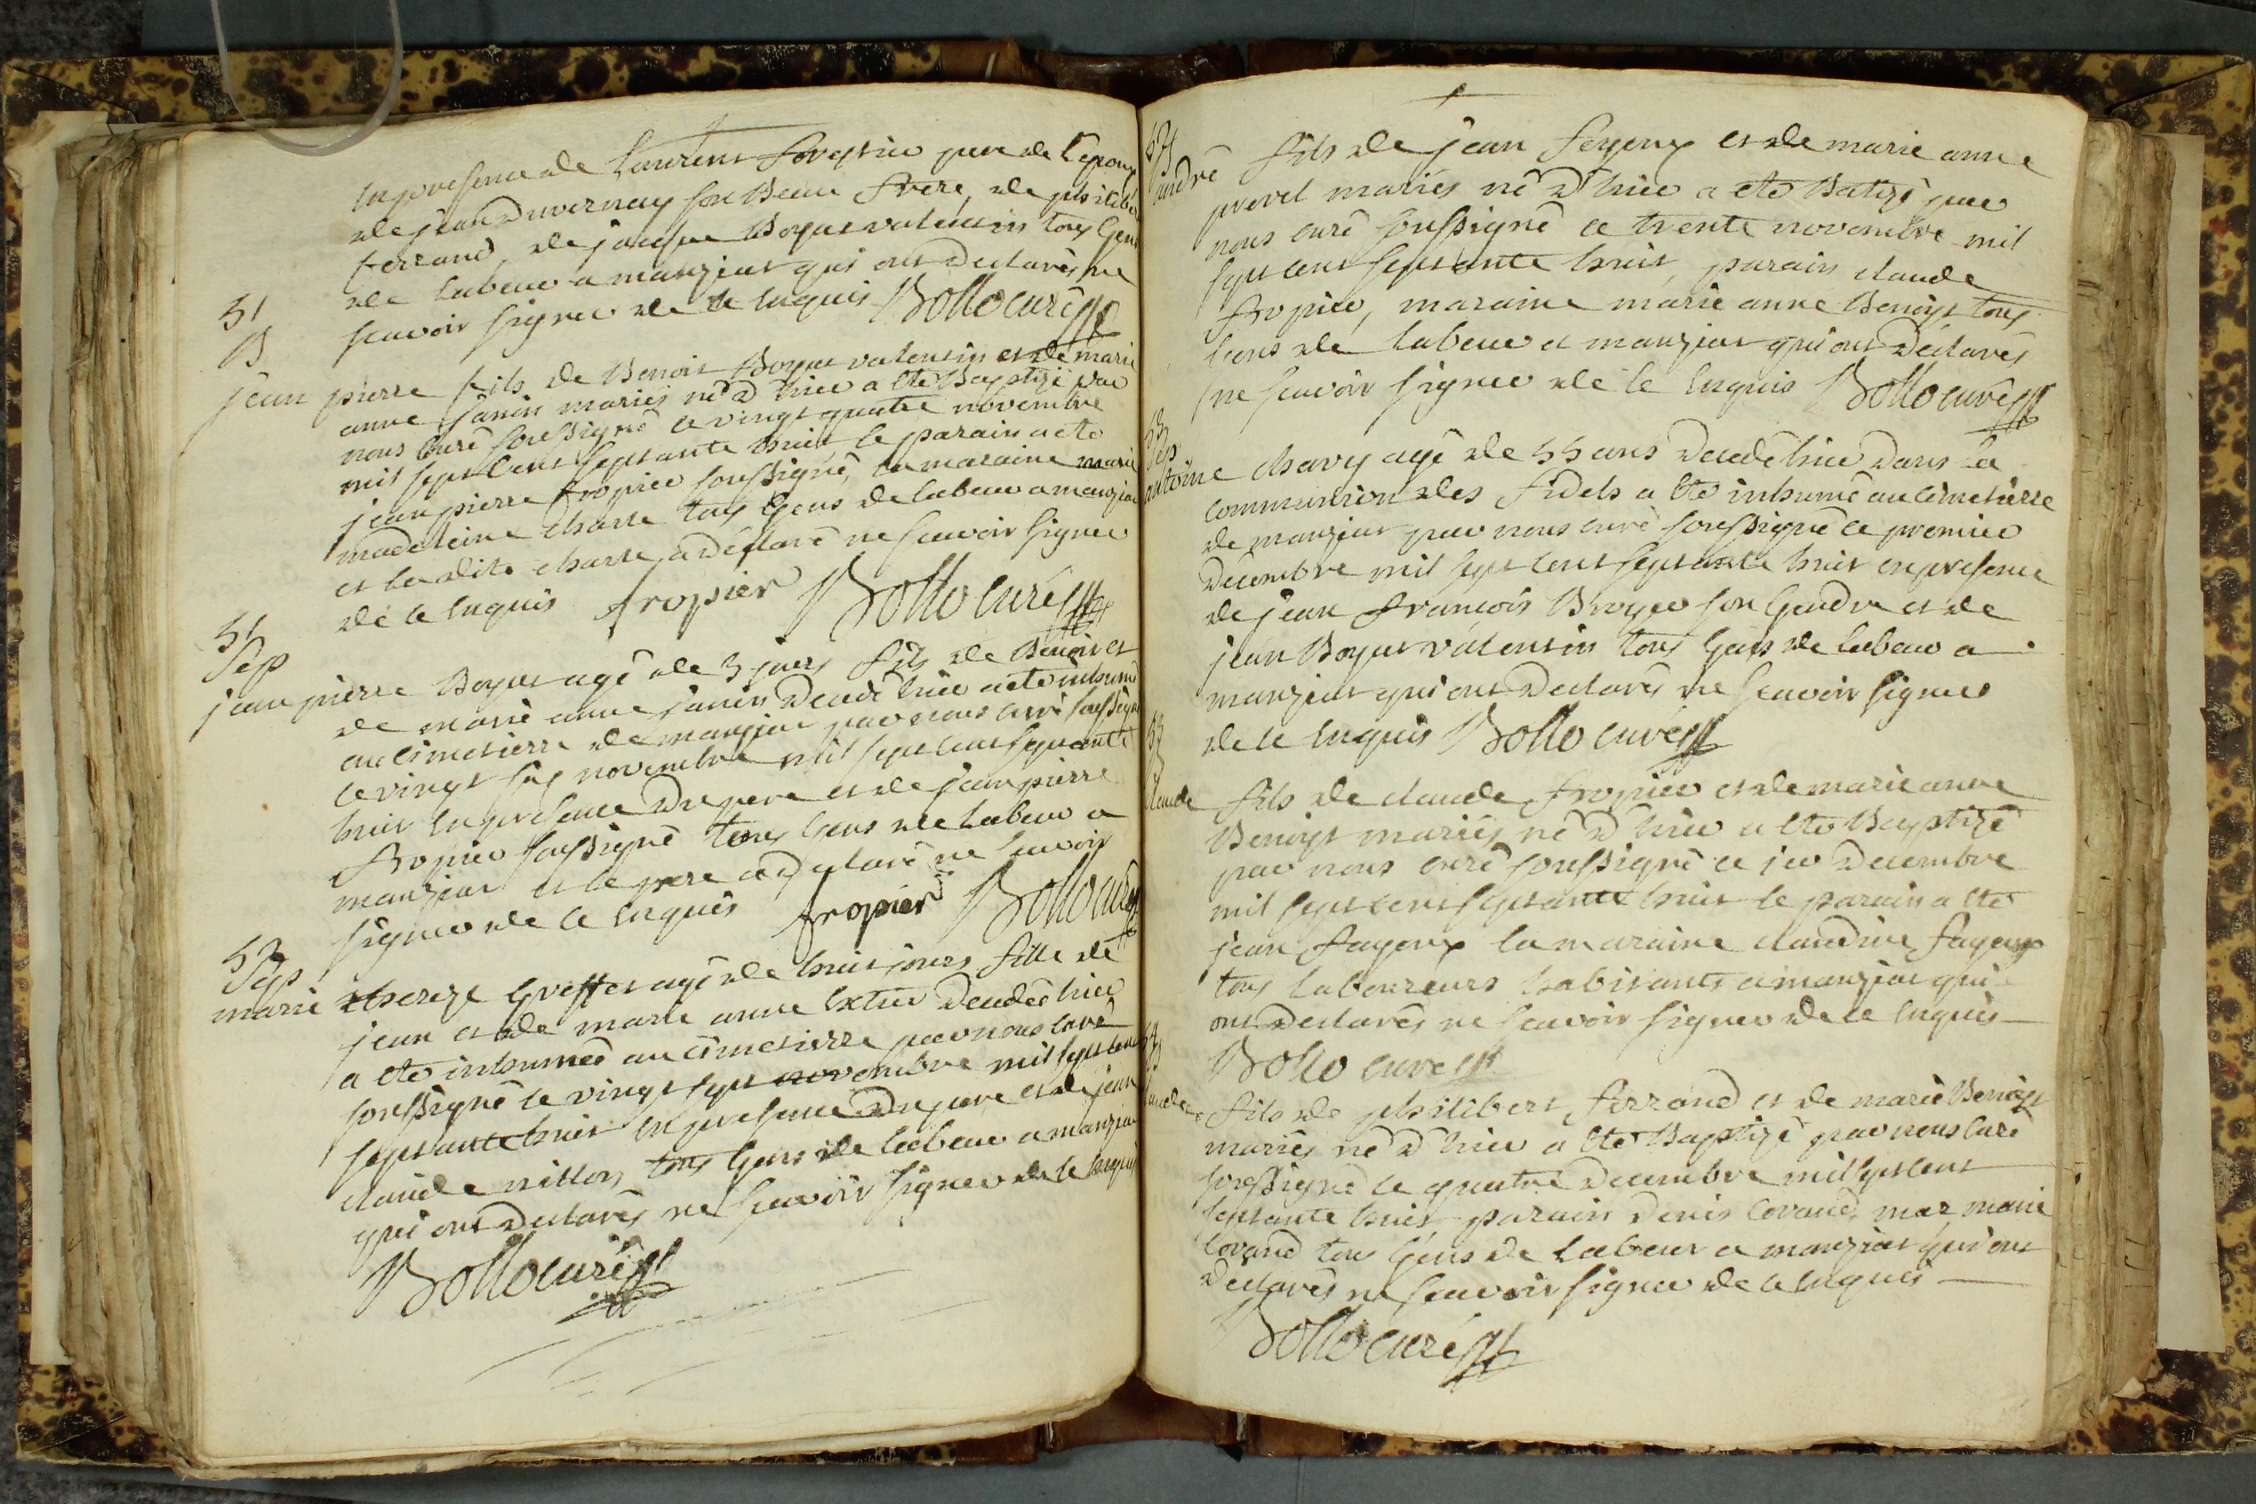 en presence de Laurent forestier pere de l'epoux
de jean Duvernay son Beau frere, de philibert
ferrand, de jacque Boyat valentin tous Gens
de labeur a manziat qui ont Declarés ne
scavoir signer de ce enquis Bollo curé
51
B
jean pierre fils de Benoit Boyat valentin et de marie
anne janin mariés né d'hier a eté Baptizé par
nous curé soussigné le vingt quatre novembre
mil sept cent septante huit le parain a ete
jean pierre fropier soussigné, la maraine marie
madeleine charle tous Gens de labeur a manziat
et la dite charle a declaré ne scavoir signer
de ce enquis fropier Bollo curé
51
Sep
jean pierre Boyat agé de 3 jours fils de Benoit et
de marie anne janin Decedé hier a ete inhumé
au cimetierre de manziat par nous curé soussigné
le vingt six novembre mil sept cent septante
huit en presence Du pere et de jean pierre
fropier soussigné tous Gens de labeur a
manziat et le pere a declaré ne scavoir
signer de ce enquis fropier Bollo curé
52
Sep
marie thereze Greffet agé de huit jours fille de
jean et de marie anne Extier Decedée hier
a eté inhumée au cimetierre par nous curé
soussigné le vingt sept novembre mil sept cent
septante huit en presence Du pere et de jean
claude nillon tous Gens de labeur a manziat
qui ont Declarés ne scavoir signer de ce enquis
Bollo curé
52
B
andré fils de jean feyeux et de marie anne
prevel mariés né d'hier a eté Batizé par
nous curé soussigné ce trente novembre mil
sept cent septante huit, parain claude
fropier, maraine marie anne Benoist tous
Gens de labeur a manziat qui ont Déclarés
ne scavoir signer de ce enquis Bollo curé
53
Sep
antoine chavy agé de 55 ans Decedé hier Dans la
communion des fidels a eté inhumé au cimetierre
de manziat par nous curé soussigné ce premier
Decembre mil sept cent septante huit en presence
de jean francois Broyer son Gendre et de
jean Boyat valentin tous Gens de labeur a
manziat qui ont Declarés ne scavoir signer
de ce enquis Bollo curé
53
B
claude fils de claude fropier et de marie anne
Benoist mariés né d'hier a eté Baptizé
par nous curé soussigné ce Decembre
mil sept cent septante huit le parain a eté
jean fayeux la maraine claudine fayeux
tous laboureurs habitants a manziat qui
ont Declarés ne scavoir signer de ce enquis
Bollo curé
54
B
claude fils de philibert ferrand et de marie Benoist
mariés né d'hier a eté Baptizé par nous curé
soussigné ce quatre Decembre mil sept cent
septante huit parain Denis lorand mar marie
lorand tous Gens de labeur a manziat qui ont
Declarés ne scavoir signer de ce enquis
Bollo curé